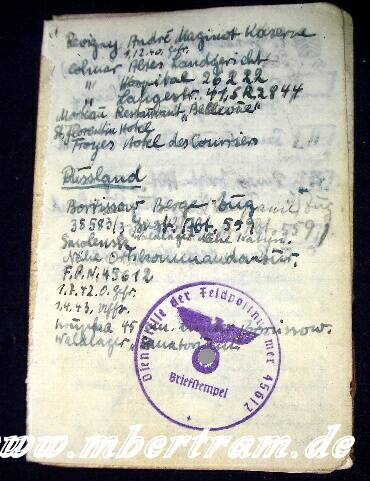 Revigny André Maginot Kaserne
1.12.40. Gfr.
Colmar Altes Landgericht
" Hospital 26222
" Langestr. 41, 5R2844
Morteau Restaurant "Bellevue"
St. Florentin Hotel
Troyes Hotel des Courriers
Russland
Borrissow Beroge
38583/3
Abt. 599
Smolensk Waldlager Nähe Katyn.
Nähe Ortskommandantur.
F.P.N. 45612
1.2.42. O.Gfr.
1.4.43. Uffz.
Krupka 45 Borissow.
Waldlager
Dienststelle der Feldpostnummer 45612
Briefstempel
www.mbertram.de